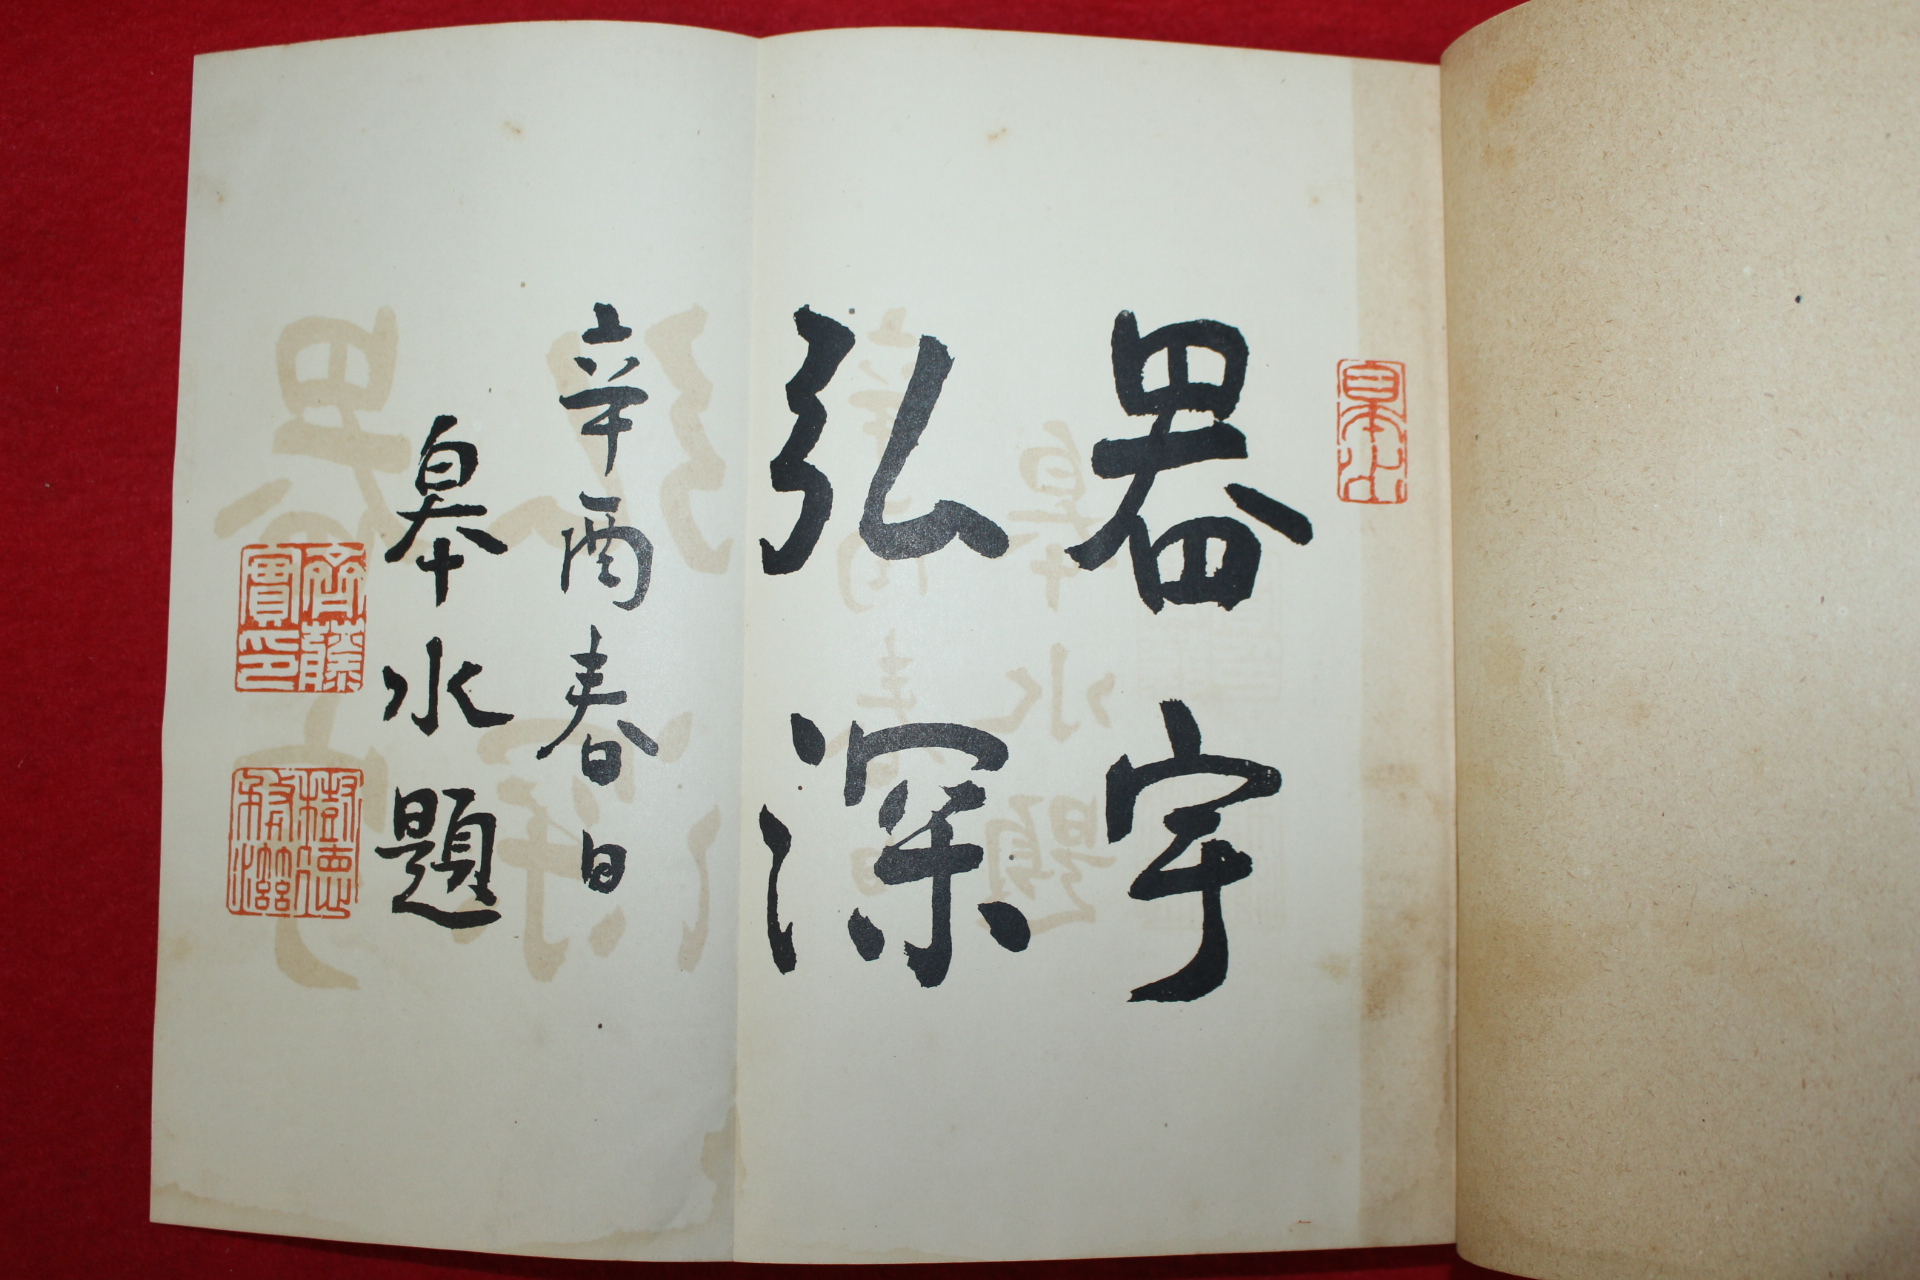 皐水
器宇
弘深
辛酉春日
皐水題
齋藤
實印
樹德
務滋